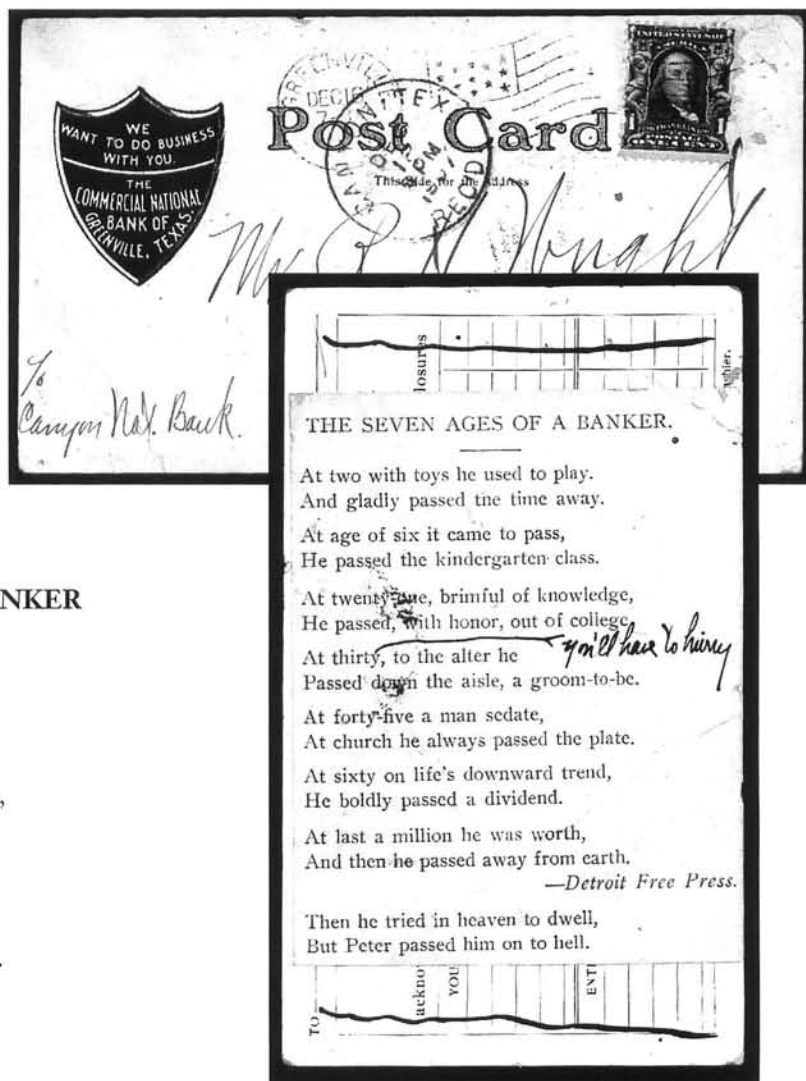 WE
WANT TO DO BUSINESS
WITH YOU.
THE
COMMERCIAL NATIONAL
BANK OF
GREENVILLE, TEXAS.
GREENVILLE
DEC 18
TEX
PM
REC'D
Post Card
This side for the Address
Mr Wright
To
Canyon Nat. Bank.
losures
shier.
THE SEVEN AGES OF A BANKER.
At two with toys he used to play.
And gladly passed the time away.
At age of six it came to pass,
He passed the kindergarten class.
At twenty-one, brimful of knowledge,
He passed, with honor, out of college
you'll have to hurry
At thirty, to the alter he
Passed down the aisle, a groom-to-be.
At forty-five a man sedate,
At church he always passed the plate.
At sixty on life's downward trend,
He boldly passed a dividend.
At last a million he was worth,
And then he passed away from earth.
—Detroit Free Press.
Then he tried in heaven to dwell,
But Peter passed him on to hell.
TO
ackno
YOU
ENT
NKER
,
.